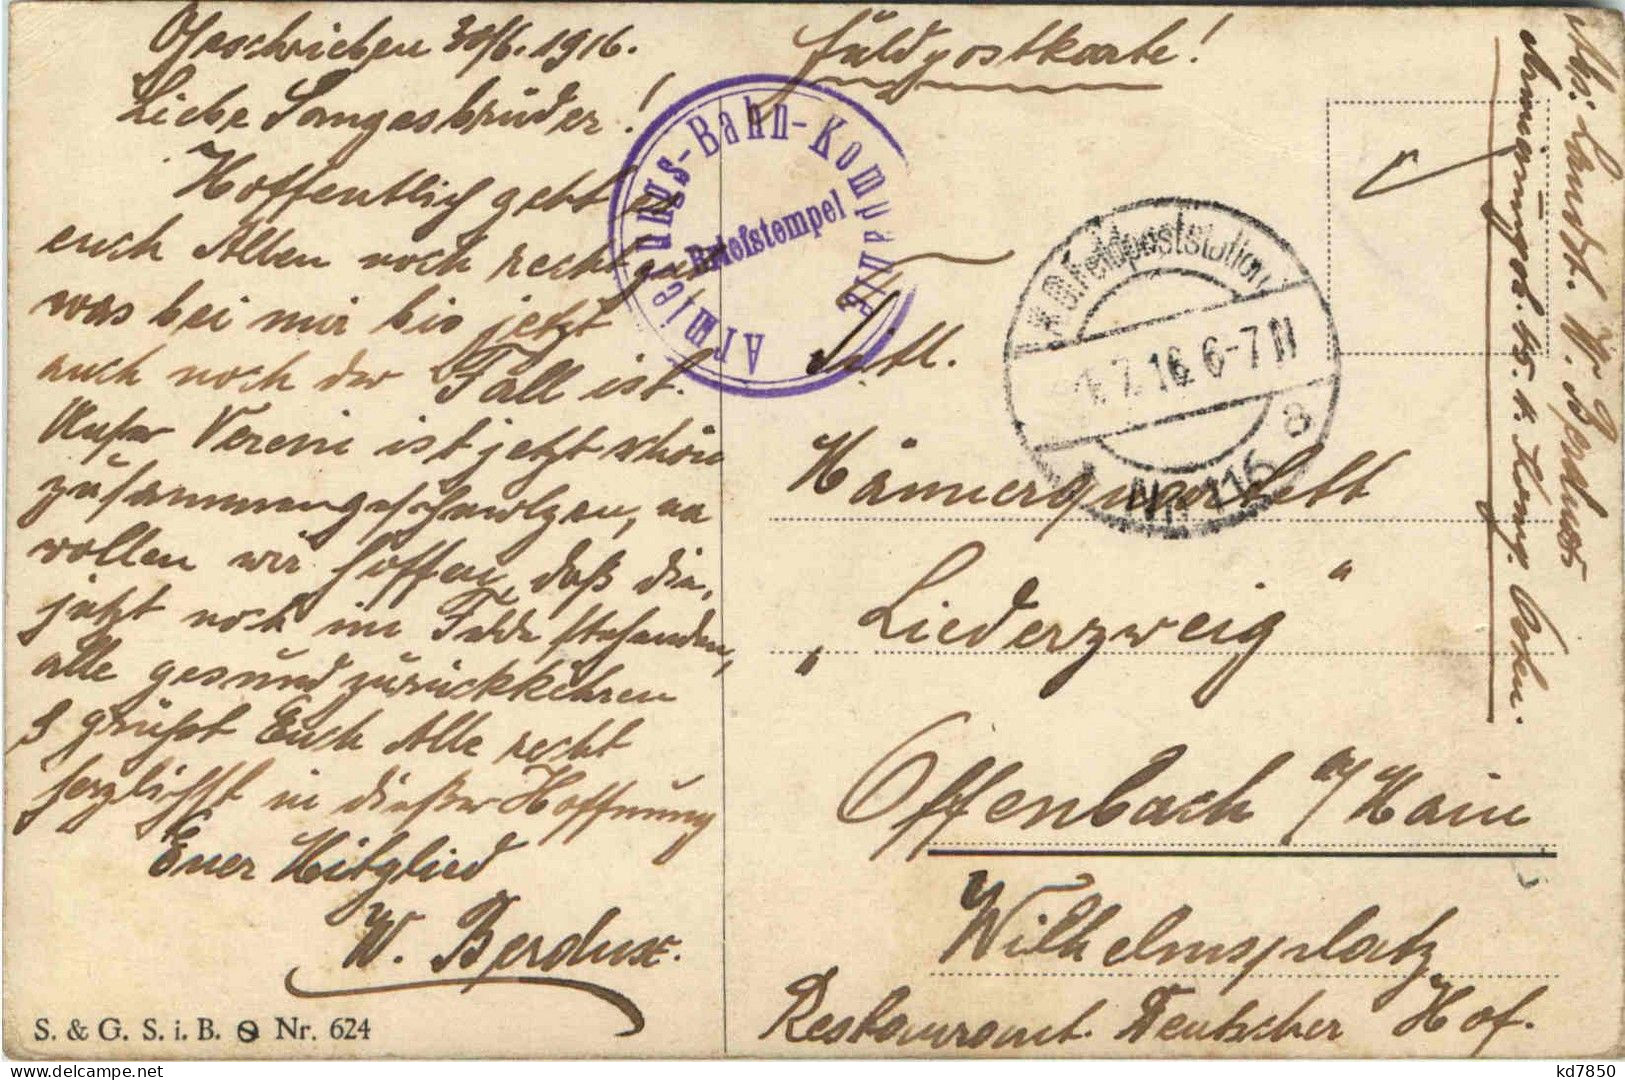 Geschrieben 30/6. 1916.
Liebe Sangesbrüder!
Hoffentlich geht es
euch Allen noch recht gut
was bei mir bis jetzt
auch noch der Fall ist.
Unser Verein ist jetzt schön
zusammengeschmolzen,
wollen wir hoffen, daß die,
jetzt noch im Felde stehenden,
alle gesund zurückkehren
& grüßt Euch Alle recht
herzlichst in dießer Hoffnung
Euer Mitglied
W. Berdux.
S. & G. S. i. B. Nr. 624
Feldpostkarte!
Armierungs-Bahn-Kompanie
Briefstempel
K.D. Feldpoststation
1.7.16 6-7 N
Nr. 116
a
Männerquartett
„Liederzweig“
Offenbach a/Main
Wilhelmsplatz
Restaurant Deutscher Hof.
Abs: Landst. W. Berdux
45.
kd7850